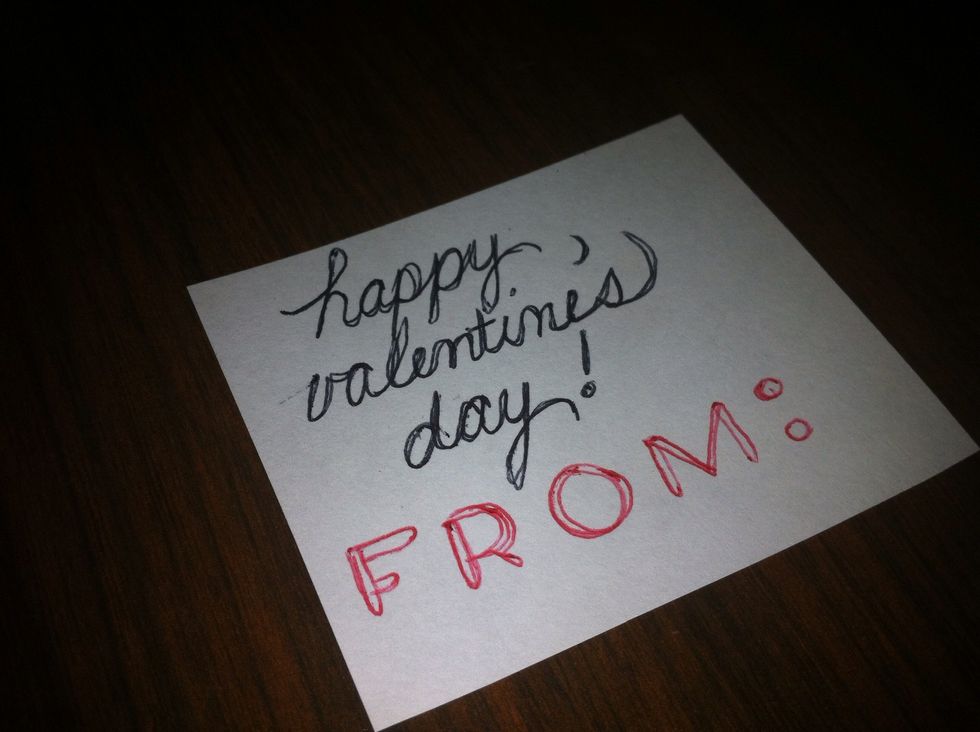 happy
valentine's
day!
FROM: